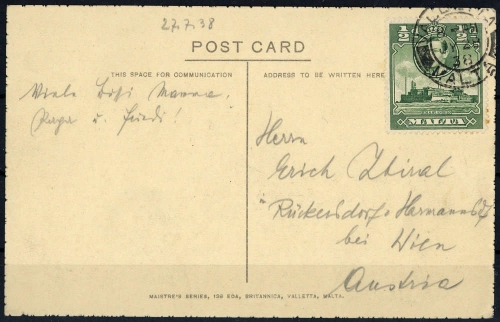 27.7.38
POST CARD
THIS SPACE FOR COMMUNICATION
ADDRESS TO BE WRITTEN HERE
1/2 1/2
VALLETTA
38
MALTA
MALTA
Viele Mama,
Papa u. Friedi!
Herrn
Erich Zbiral
Rückersdorf-Harmannsdf
bei Wien
Austria
MAISTRE'S SERIES, 156 EDA, BRITANNICA, VALLETTA, MALTA.